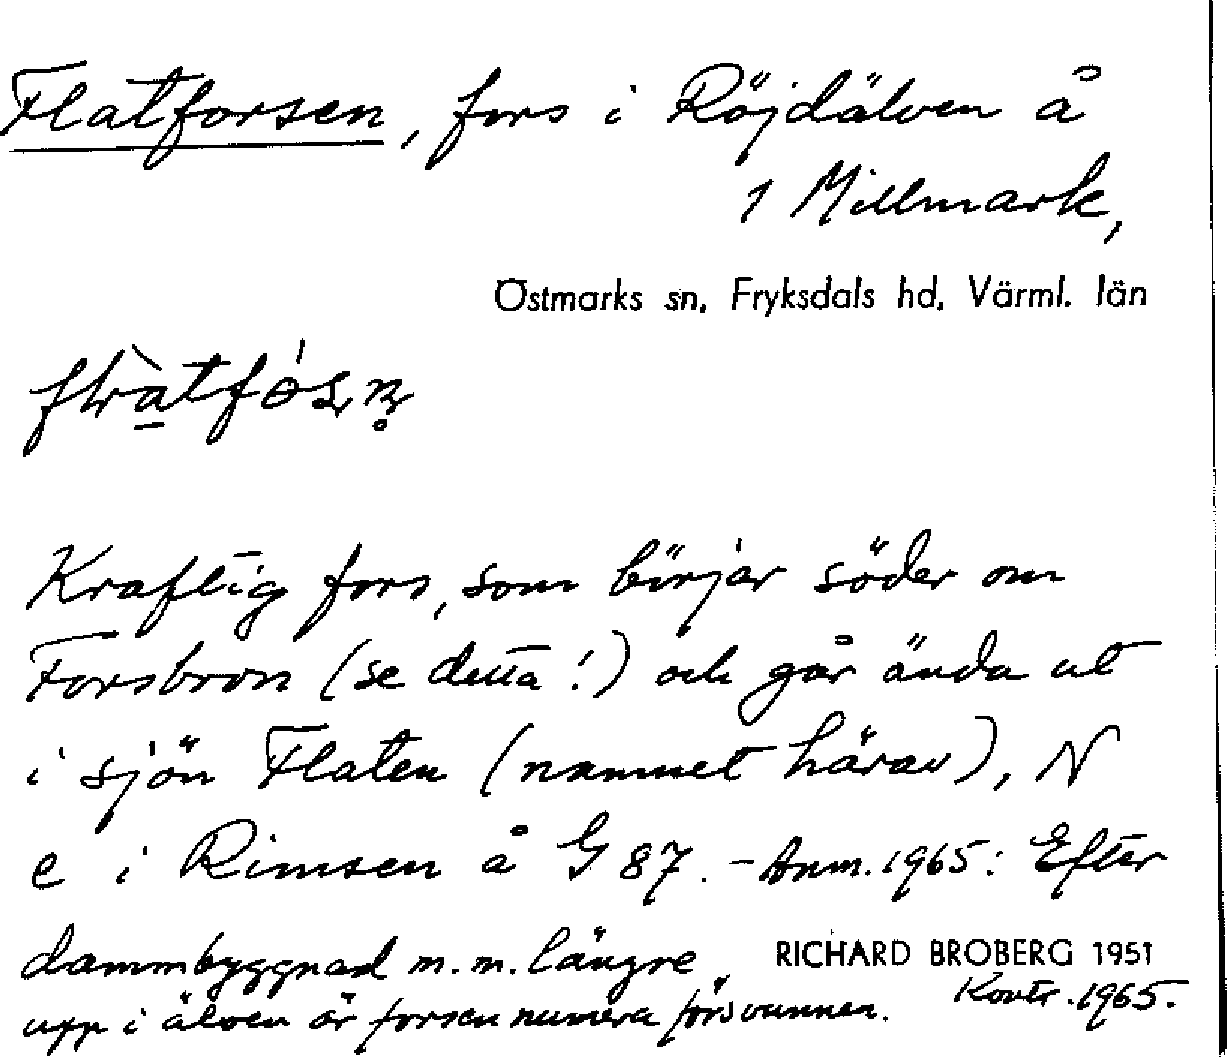 Flatforsen, fors i Röjdälven å
1 Millmark,
Östmarks sn, Fryksdals hd, Värml. län
Kraftig fors, som börjar söder om
Forsbron (se detta!) och går ända ut
i sjön Flaten (namnet härav), N
e i Rimsen å G 87. – Anm. 1965: Efter
dammbyggnad m.m. längre
upp i älven är forsen numera försvunnen.
RICHARD BROBERG 1951
Kontr. 1965.